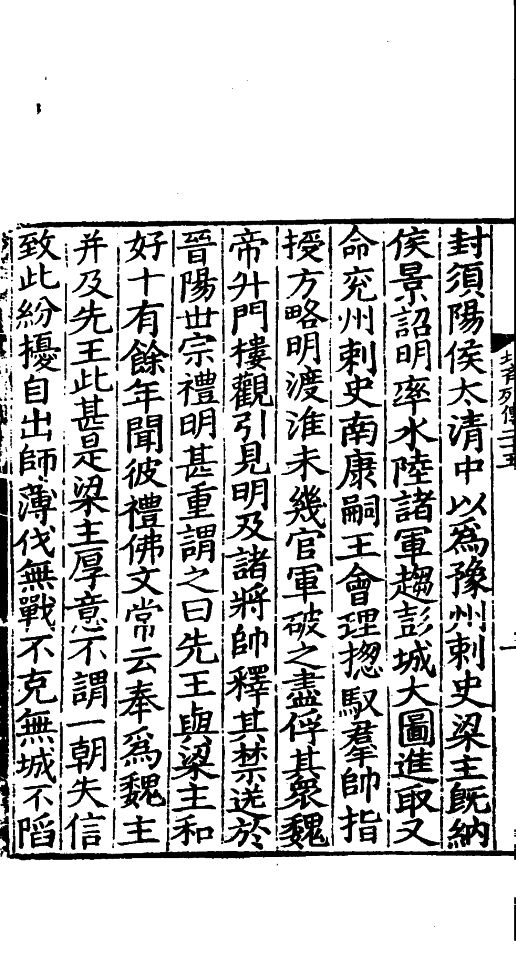 封須陽侯太清中以爲豫州刺史梁主旣納
侯景詔明率水陸諸軍趨彭城大圖進取又
命兖州刺史南康嗣王會理揔馭羣帥指
授方略明渡淮未幾官軍破之盡俘其衆魏
帝升門樓觀引見明及諸將帥釋其禁送於
晉陽世宗禮明甚重謂之曰先王與梁主和
好十有餘年聞彼禮佛文常云奉爲魏主
并及先王此甚是梁主厚意不謂一朝失信
致此紛擾自出師薄伐無戰不克無城不陷